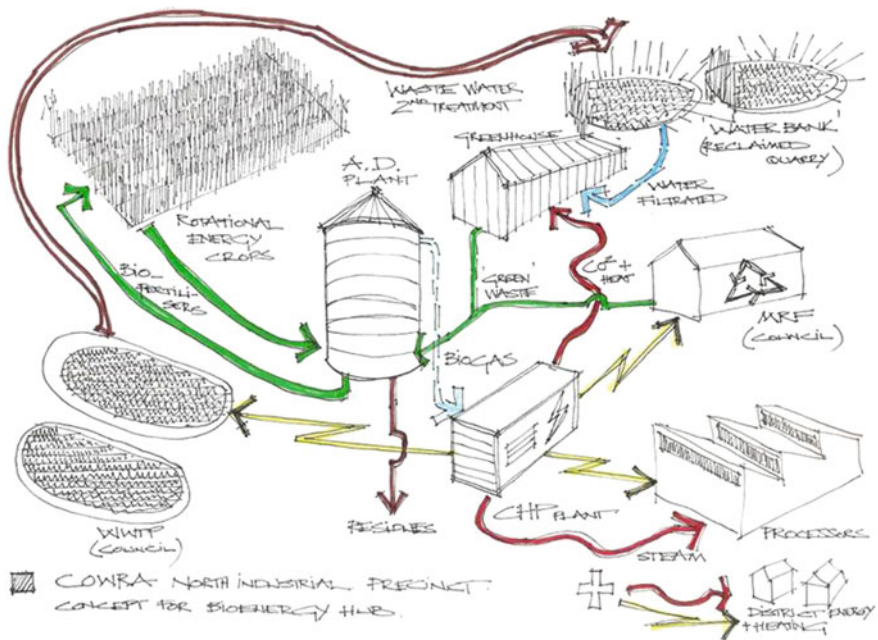 WASTE WATER
2ND TREATMENT
GREENHOUSE
WATER BANK
(RECLAIMED
QUARRY)
A.D.
PLANT
WATER
FILTRATED
ROTATIONAL
ENERGY
CROPS
BIO-
FERTILI-
SERS
'GREEN'
WASTE
CO² +
HEAT
MRF
(COUNCIL)
BIOGAS
WWTP
(COUNCIL)
RESIDUES
CHP PLANT
STEAM
PROCESSORS
COWRA NORTH INDUSTRIAL PRECINCT.
CONCEPT FOR BIOENERGY HUB.
DISTRICT ENERGY
+ HEATING